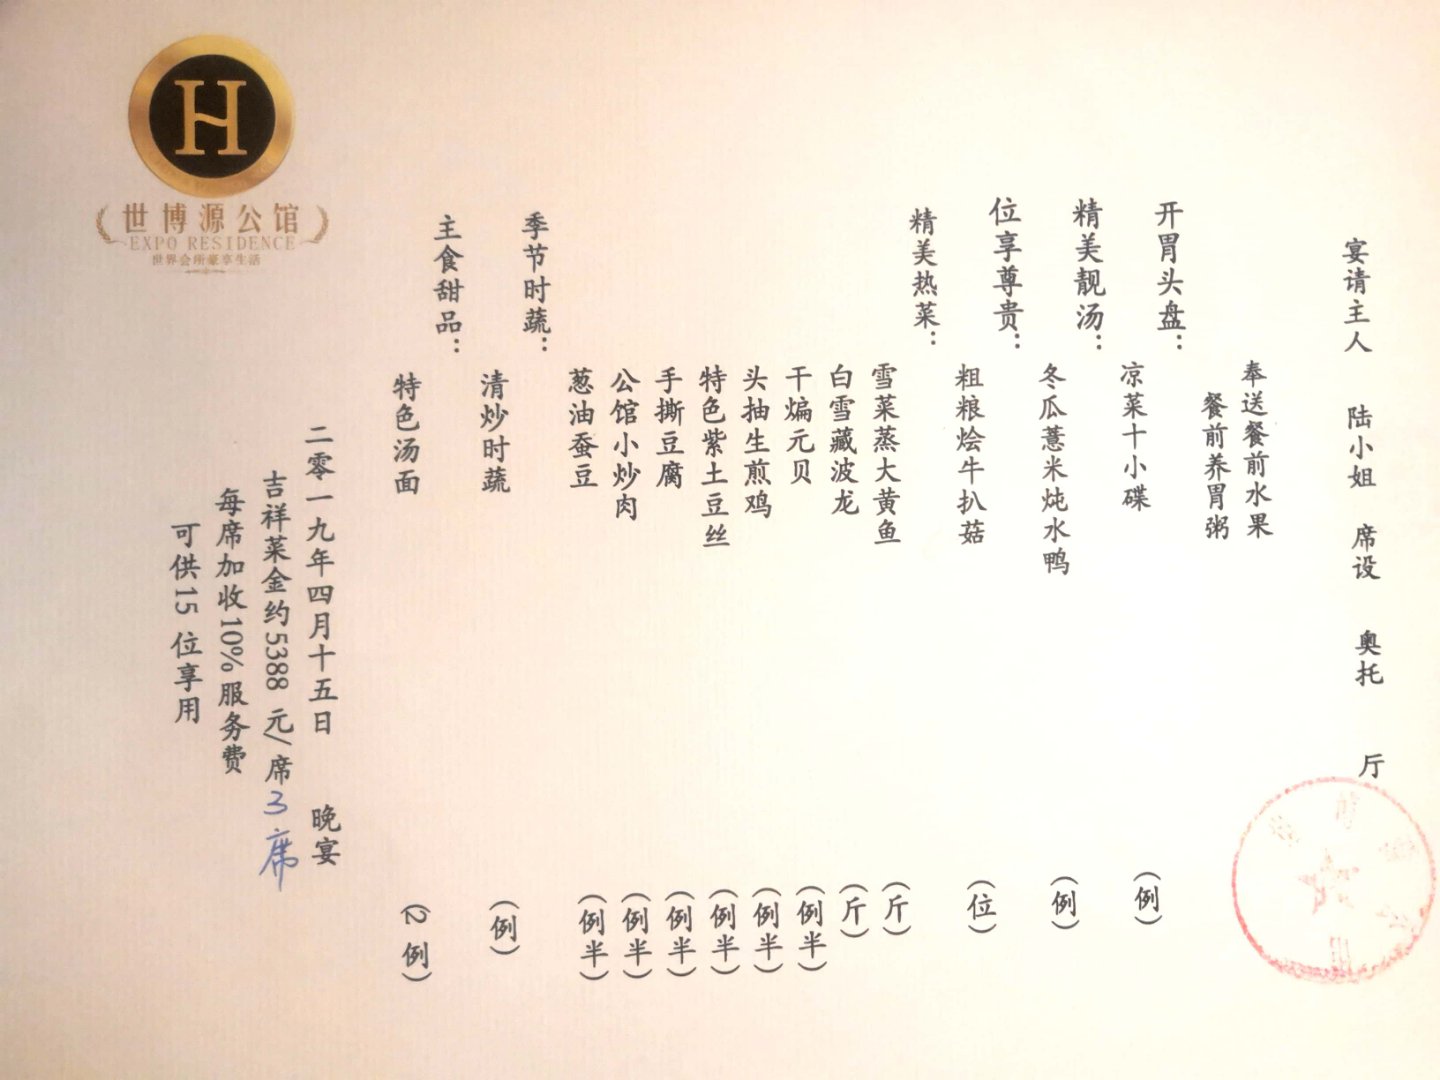 宴请主人 陆小姐 席设 奥托 厅
奉送餐前水果
餐前养胃粥
开胃头盘：
凉菜十小碟 （例）
精美靓汤：
冬瓜薏米炖水鸭 （例）
位享尊贵：
粗粮烩牛扒菇 （位）
精美热菜：
雪菜蒸大黄鱼 （斤）
白雪藏波龙 （斤）
干煸元贝 （例半）
头抽生煎鸡 （例半）
特色紫土豆丝 （例半）
手撕豆腐 （例半）
公馆小炒肉 （例半）
葱油蚕豆 （例半）
季节时蔬：
清炒时蔬 （例）
主食甜品：
特色汤面 （2 例）
二零一九年四月十五日 晚宴
吉祥菜金约5388 元/席 3席
每席加收10%服务费
可供15 位享用
H
世博源公馆
EXPO RESIDENCE
世界会所豪享生活